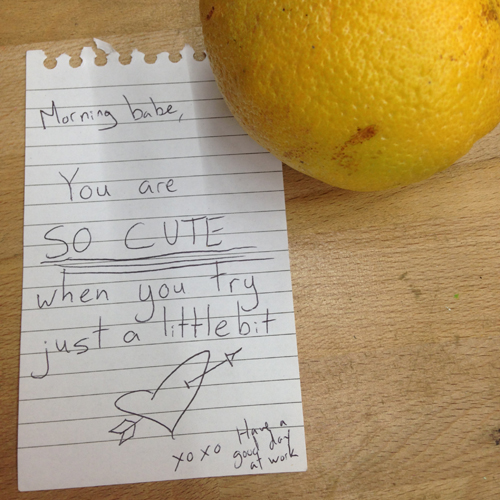 Morning babe,
You are
SO CUTE
when you try
just a little bit
xoxo
Have a
good day
at work